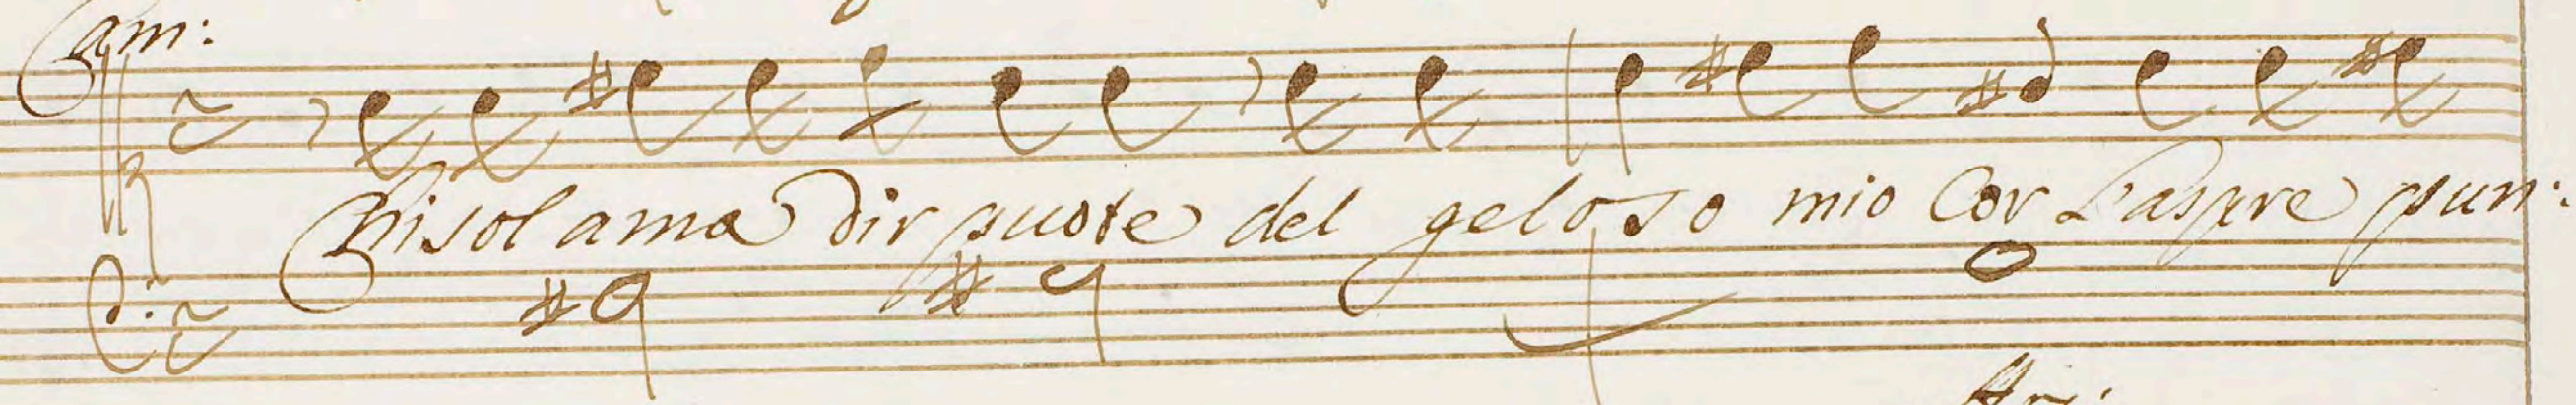 Cam:
Chi sol ama dir puote del geloso mio Cor L'aspre pun: